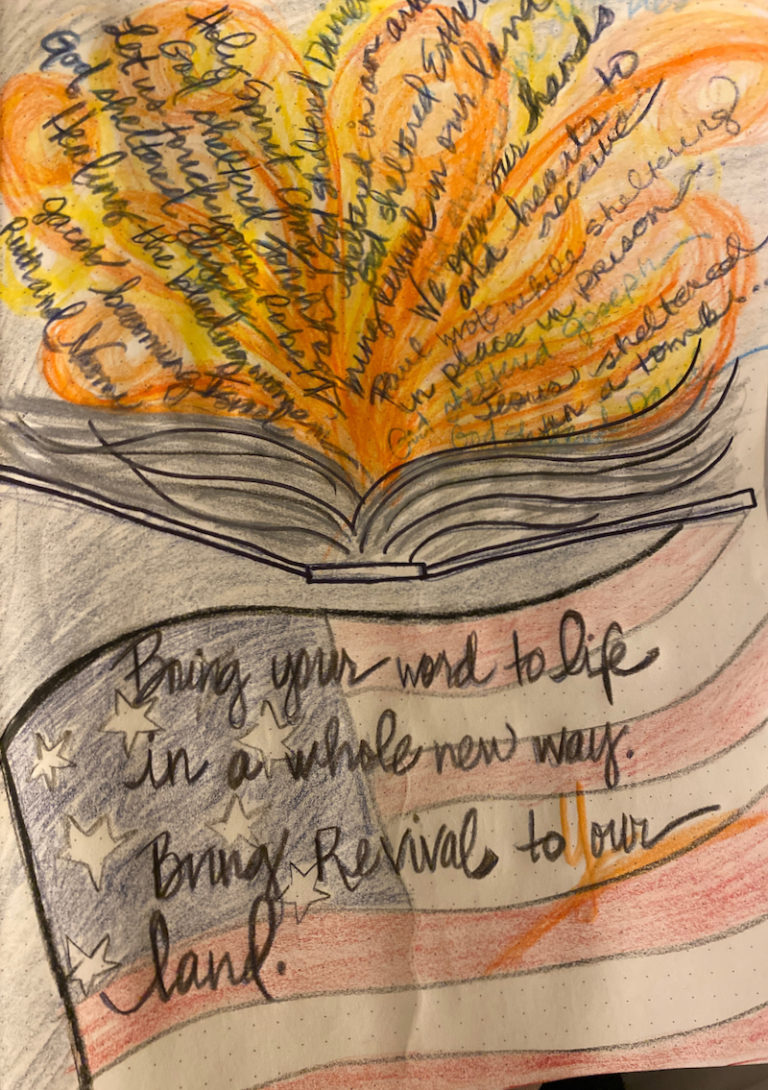 Ruth and Naomi
Jacob becoming
Healing the bleeding woman
God sheltered Elijah
Let us touch your
God sheltered Jonah
Holy Spirit
God sheltered
Noah sheltered in an ark
God sheltered Esther
bring revival in our land
We open our hands
and hearts to
receive
Paul wrote while sheltering
in place in prison
God sheltered Joseph
Jesus, sheltered
in a tomb...
God
Bring your word to life
in a whole new way.
Bring Revival to our
land.